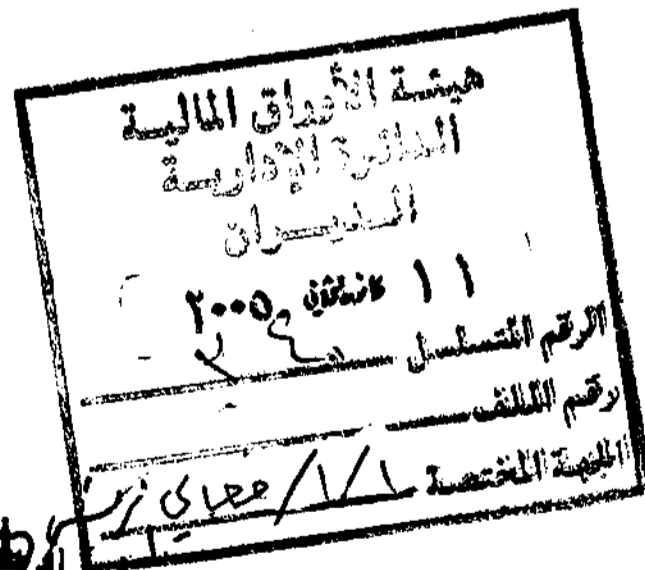 هيئة الأوراق المالية
الدائرة الإدارية
الديوان
١١ كانون ثاني ٢٠٠٥
الرقم المتسلسل
رقم الملف
الجهة المختصة ١/١/